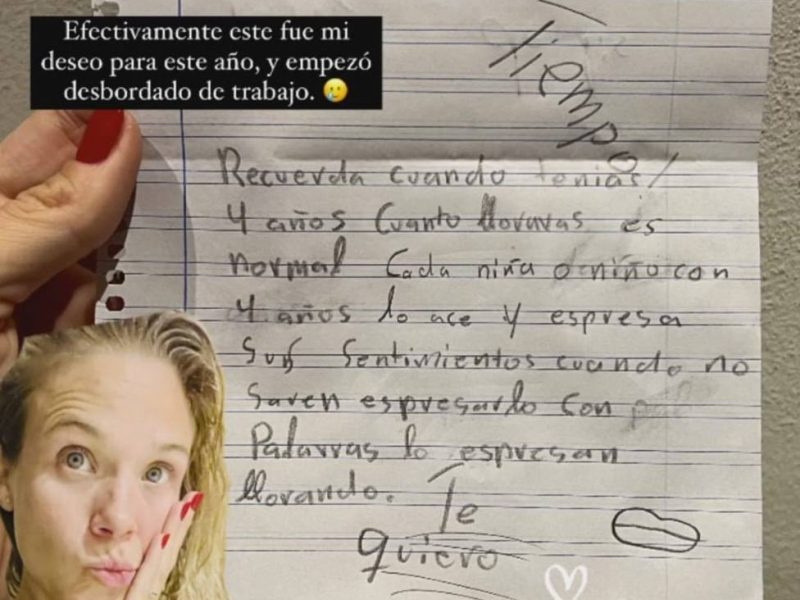 Efectivamente este fue mi
deseo para este año, y empezó
desbordado de trabajo. 🥲
Tiempo
Recuerda cuando tenias
4 años Cuanto lloravas es
normal Cada niña o niño con
4 años lo ace y espresa
Sus Sentimientos cuando no
Saven espresarlo con
Palavras lo espresan
llorando. Te
quiero